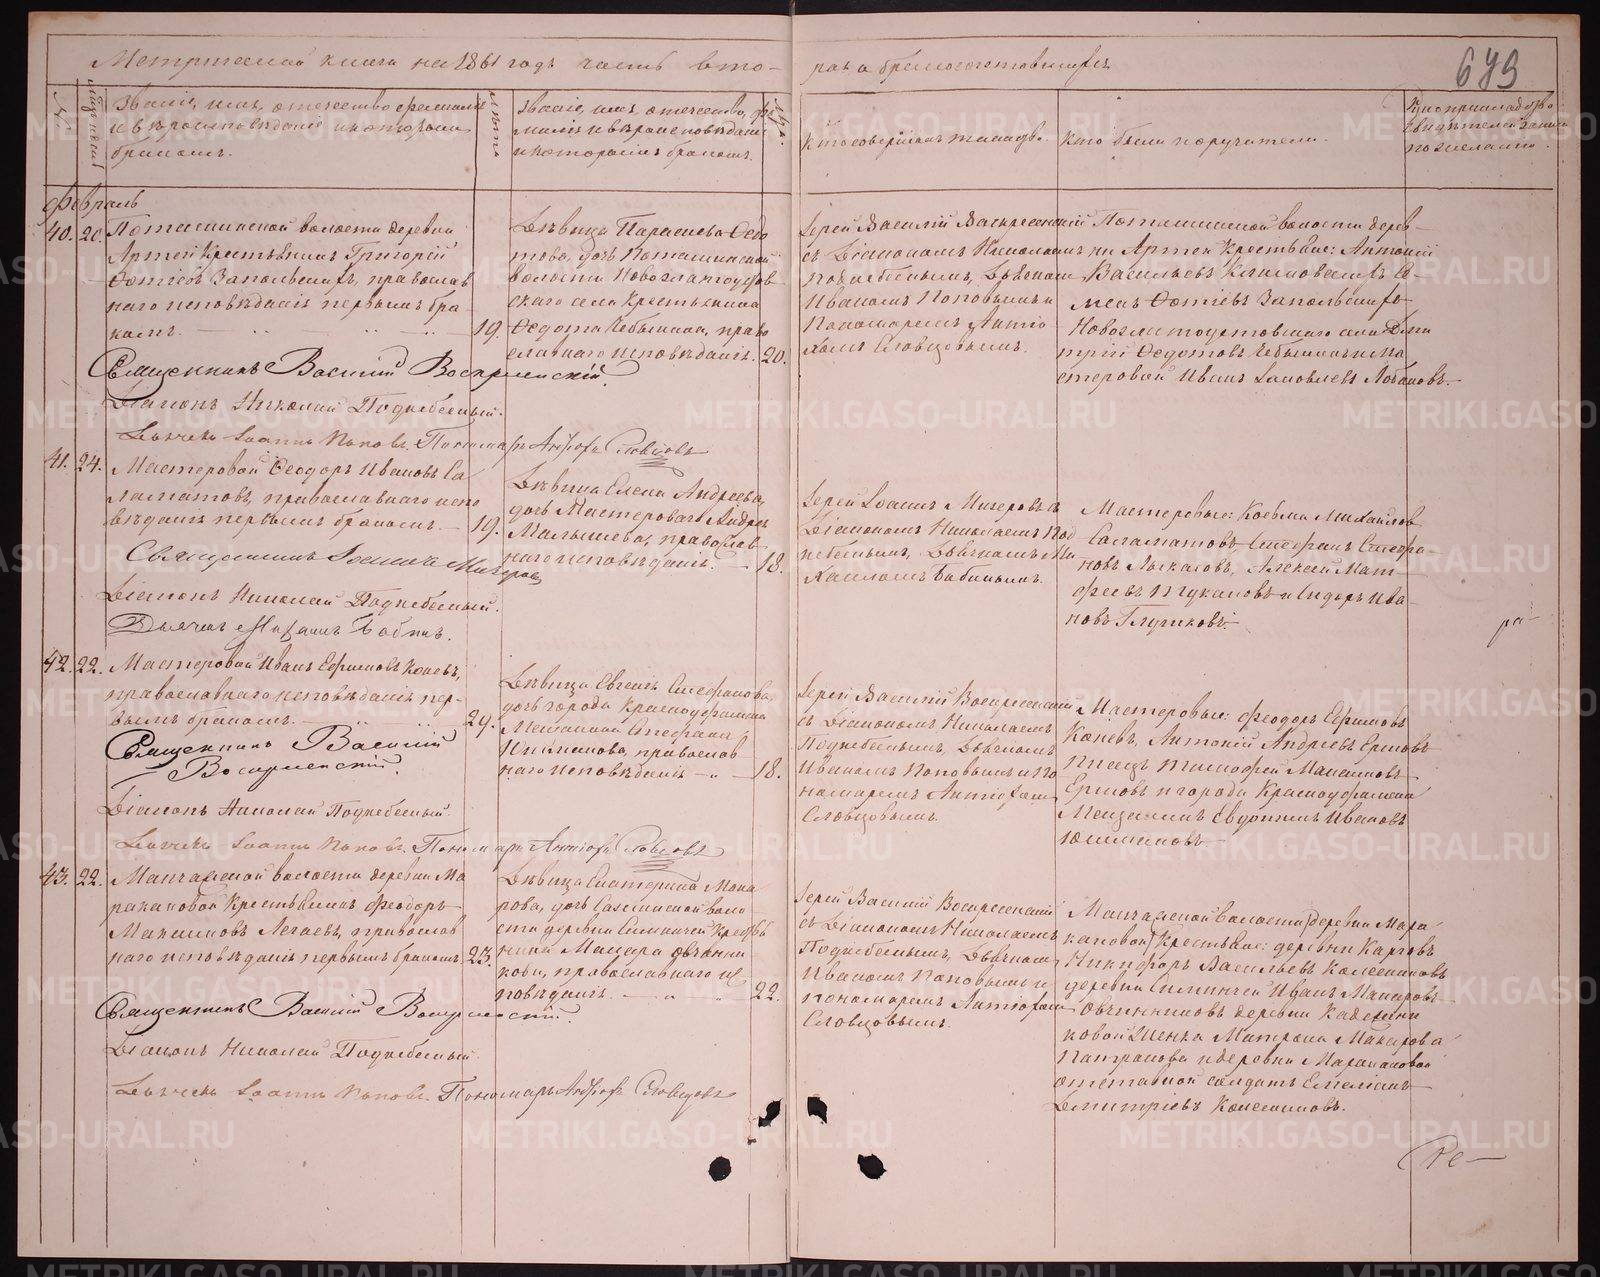 Метрической книги на 1861 годъ часть вто-
рая о бракосочетавшихся
679
№
Званіе, имя, отечество, фамилія
и вѣроисповѣданіе и которымъ
бракомъ.
Лѣта
Званіе, имя, отечество, фа
милія и вѣроисповѣданіе
и которымъ бракомъ.
Лѣта
Кто совершалъ таинство.
Кто были поручители.
Февраль
40. 20. Поташинской волости деревни
Артей Крестьянинъ Григорій
Фотіевъ Запольскихъ, православ
наго исповѣданія первымъ бра-
комъ. 19.
Дѣвица Параскева Ѳедо
това, дочь Поташинской
волости Новозлатоустов
скаго села Крестьянина
Ѳедота Чебыкина, право
славнаго исповѣданія. 20.
Іерей Василій Воскресенскій
съ Діакономъ Николаемъ
Поднебеснымъ, Дьячкомъ
Иваномъ Поповымъ и
Пономаремъ Антіо
хомъ Словцовымъ.
Поташинской волости дерев-
ни Артей Крестьяне: Антоній
Васильевъ Климовскихъ, Се-
менъ Фотіевъ Запольскихъ
Новозлатоустовскаго села Дми
трій Ѳедотовъ Чебыкинъ и Ма
стеровой Иванъ Яковлевъ Лобановъ.
Священникъ Василій Воскресенскій.
Діаконъ Николай Поднебесный.
Дьячекъ Іоаннъ Поповъ. Пономарь Антіохъ Словцовъ
41. 24. Мастеровой Ѳеодоръ Ивановъ Са
ламатовъ, православнаго испо
вѣданія первымъ бракомъ. 19.
Дѣвица Елена Андреева,
дочь Мастероваго Андрея
Малышева, православ
наго исповѣданія. 18.
Іерей Іоаннъ Мичуровъ съ
Діакономъ Николаемъ Под
небеснымъ, Дьячкомъ Ми
хаиломъ Бабинымъ.
Мастеровые: Козьма Михайловъ
Саламатовъ, Стефанъ Стефа-
новъ Лыкасовъ, Алексѣй Мат-
фѣевъ Щукановъ и Сидоръ Ива
новъ Глушковъ.
Священникъ Іоаннъ Мичуровъ
Діаконъ Николай Поднебесный.
Дьячекъ Михаилъ Бабинъ.
42. 22. Мастеровой Иванъ Ефимовъ Коневъ,
православнаго исповѣданія пер-
вымъ бракомъ. 24.
Дѣвица Евгенія Стефанова,
дочь города Красноуфимска
Мещанина Стефана
Пименова, православ
наго исповѣданія 18.
Іерей Василій Воскресенскій
съ Діакономъ Николаемъ
Поднебеснымъ, Дьячкомъ
Иваномъ Поповымъ и По
номаремъ Антіохомъ
Словцовымъ.
Мастеровые: Феодоръ Ефимовъ
Коневъ, Антоній Андреевъ Ершовъ
писецъ Тимофей Максимовъ
Ершовъ и города Красноуфимска
Мещанинъ Евдокимъ Ивановъ
Священникъ Василій
Воскресенскій.
Діаконъ Николай Поднебесный.
Дьячекъ Іоаннъ Поповъ. Пономарь Антіохъ Словцовъ
43. 22. Манчажской волости деревни Ма
ракановой Крестьянинъ Феодоръ
Максимовъ Легаевъ, православ
наго исповѣданія первымъ бракомъ 23.
Дѣвица Екатерина Мака
рова, дочь Сажинской воло
сти деревни Симинчей Кресть
нина Макара Овчинни
кова, православнаго ис
повѣданія. 22.
Іерей Василій Воскресенскій
съ Діакономъ Николаемъ
Поднебеснымъ, Дьячкомъ
Иваномъ Поповымъ и
пономаремъ Антіохомъ
Словцовымъ.
Манчажской волости деревни Мара-
кановой Крестьяне: деревни Карговъ
Никифоръ Васильевъ Колесниковъ
деревни Симинчей Иванъ Макаровъ
Овчинниковъ деревни
ковой Женка Матрона Макарова
Патракова и деревни Маракановой
отставной солдатъ Емеліанъ
Дмитріевъ Колесниковъ.
Священникъ Василій Воскресенскій.
Діаконъ Николай Поднебесный.
Дьячекъ Іоаннъ Поповъ. Пономарь Антіохъ Словцовъ
ра-
Ре-
METRIKI.GASO-URAL.RU